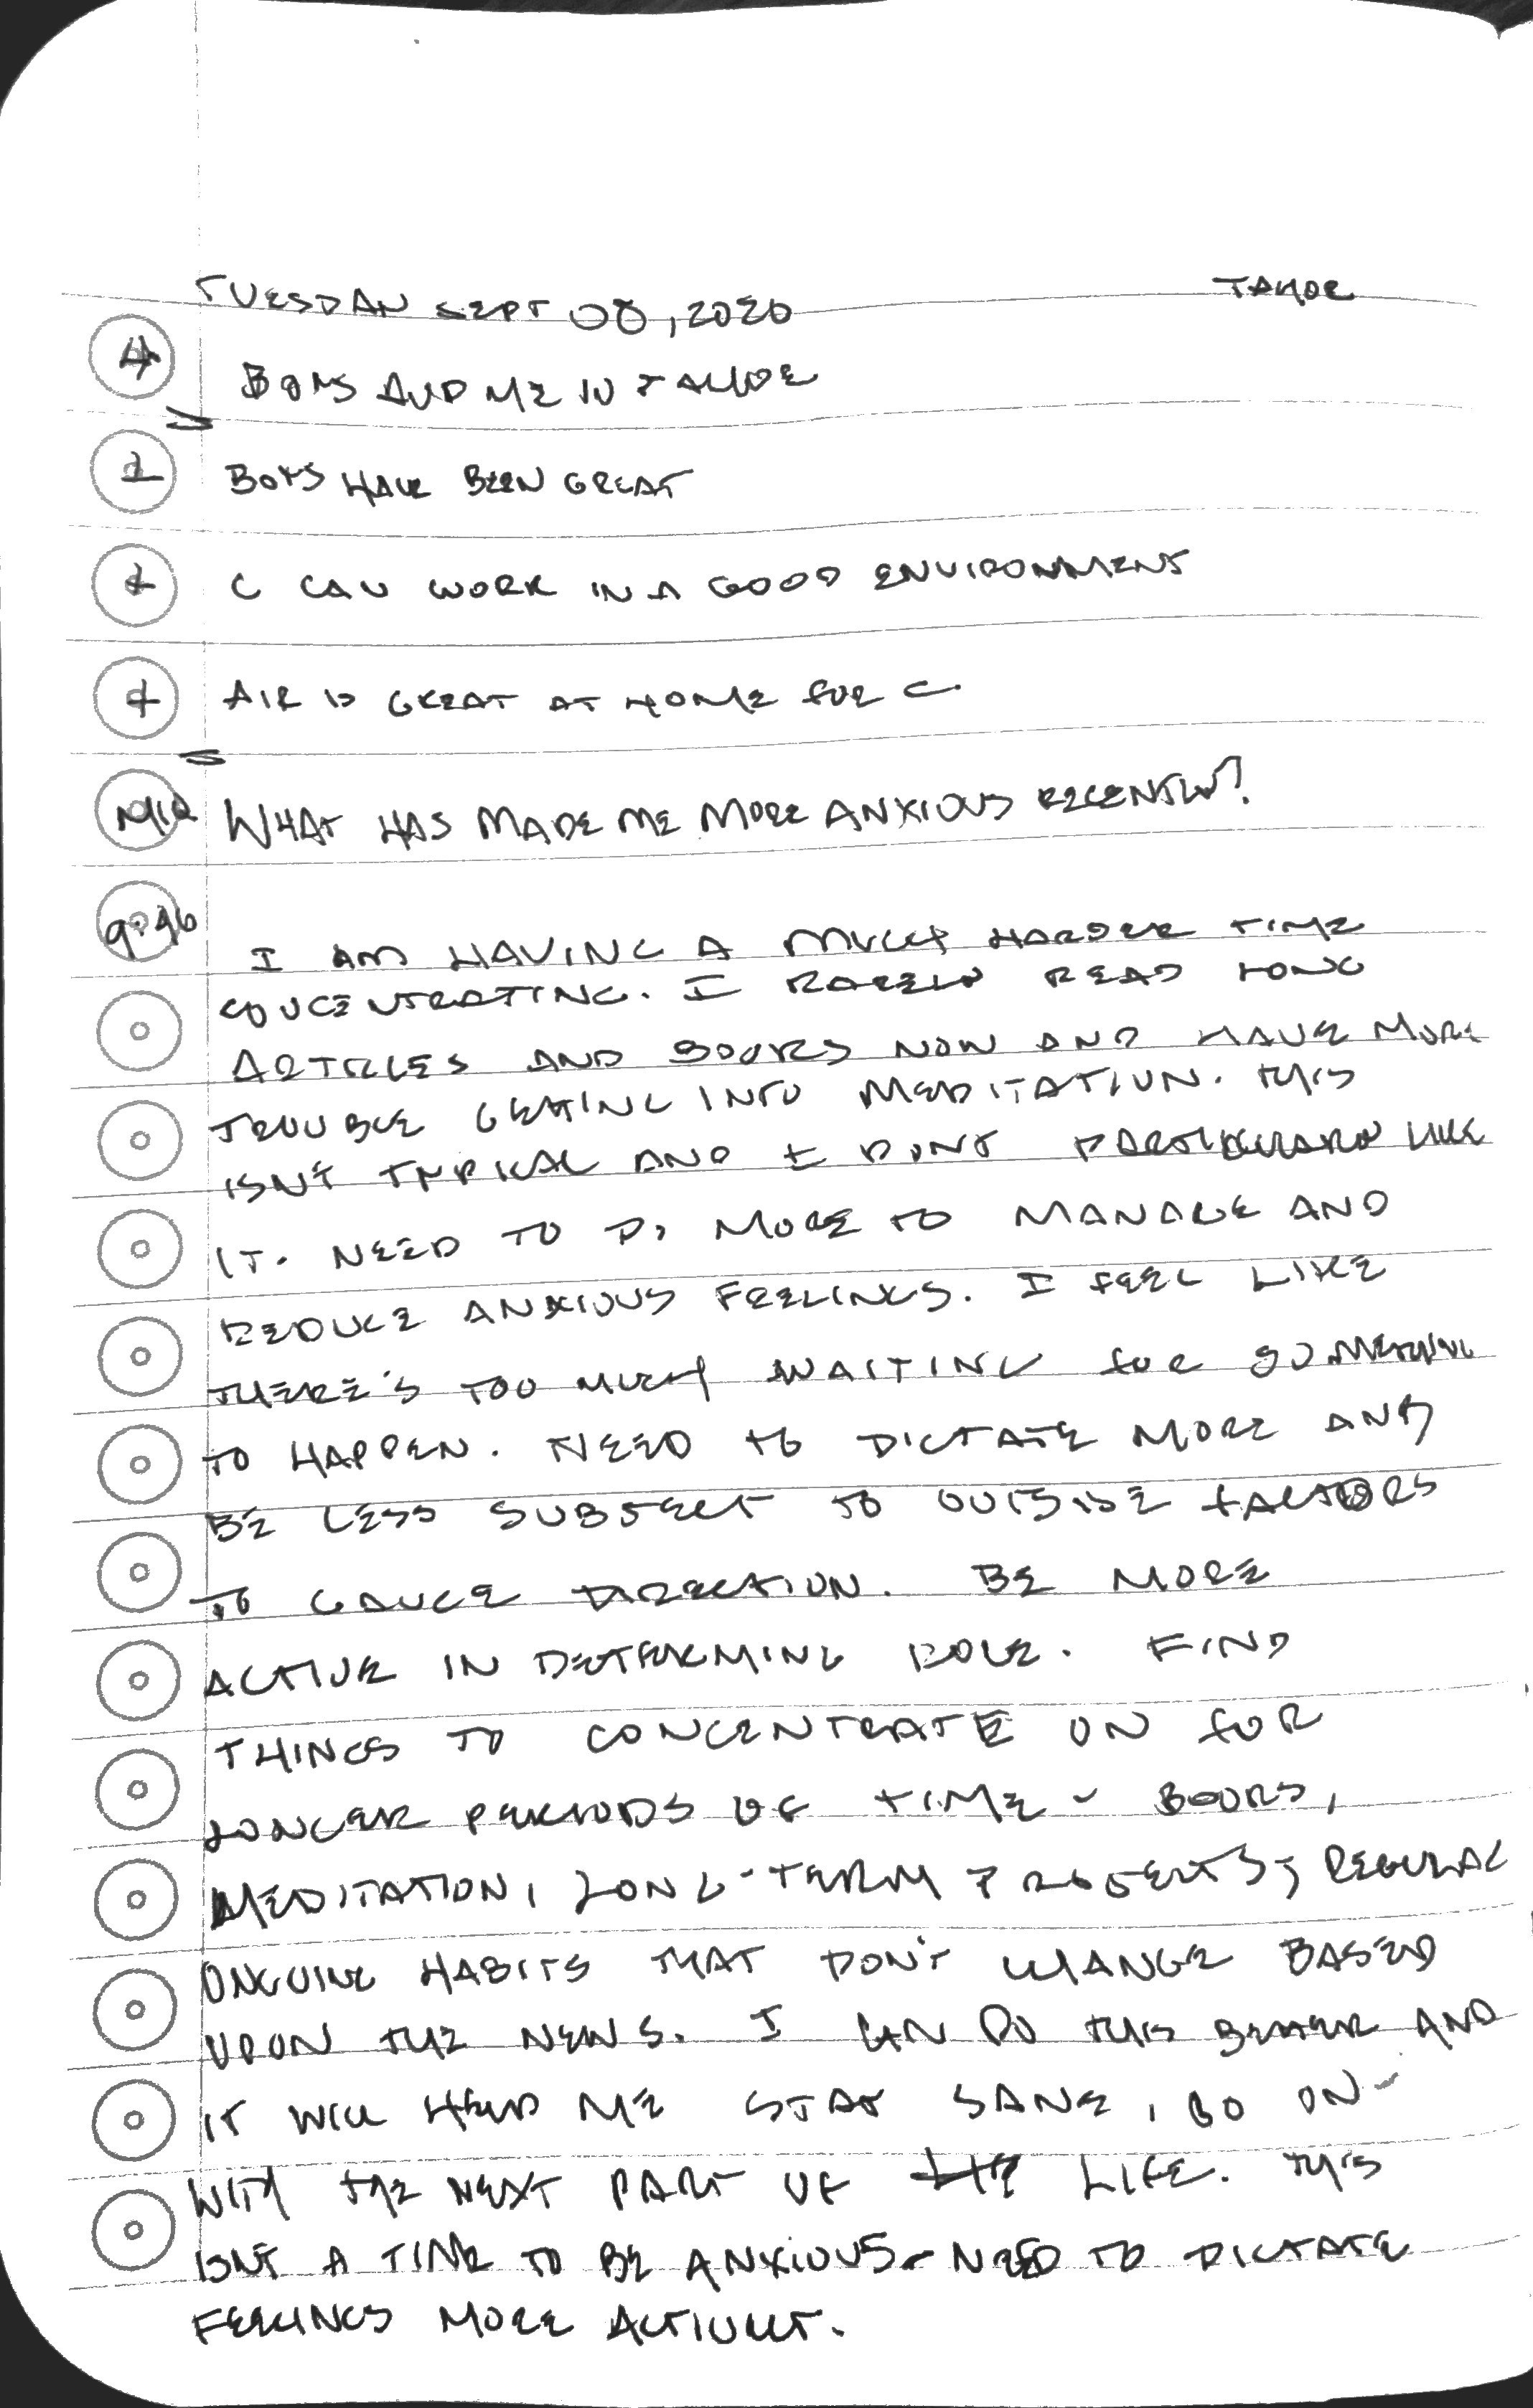 TUESDAY SEPT 08, 2020 TAHOE
4 BOYS AND ME IN TAHOE
BOYS HAVE BEEN GREAT
C CAN WORK IN A GOOD ENVIRONMENT
AIR IS GREAT AT HOME FOR C.
WHAT HAS MADE ME MORE ANXIOUS RECENTLY?
9:46
I AM HAVING A MUCH HARDER TIME
CONCENTRATING. I RARELY READ LONG
ARTICLES AND BOOKS NOW AND HAVE MORE
TROUBLE GETTING INTO MEDITATION. THIS
ISN'T TYPICAL AND I DONT PARTICULARLY LIKE
IT. NEED TO DO MORE TO MANAGE AND
REDUCE ANXIOUS FEELINGS. I FEEL LIKE
THERE'S TOO MUCH WAITING FOR SOMETHING
TO HAPPEN. NEED TO DICTATE MORE AND
BE LESS SUBJECT TO OUTSIDE FACTORS
TO GAUGE DIRECTION. BE MORE
ACTIVE IN DETERMING ROLE. FIND
THINGS TO CONCENTRATE ON FOR
LONGER PERIODS OF TIME - BOOKS,
MEDITATION, LONG-TERM PROJECTS, REGULAR
ONGOING HABITS THAT DON'T CHANGE BASED
UPON THE NEWS. I CAN DO THIS BETTER AND
IT WILL HELP ME STAY SANE, GO ON-
WITH THE NEXT PART OF LIFE. THIS
ISNT A TIME TO BE ANXIOUS - NEED TO DICTATE
FEELINGS MORE ACTIVELY.